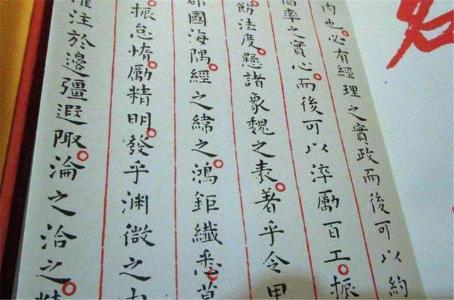 內也必有經理之實政而後可以約
倡率之實心而後可以淬厲百工振
飭法度懸諸象魏之表著乎令甲
郡國海隅經之緯之鴻鉅纖悉莫
振怠惰勵精明發乎渊微之
灌注於邊疆遐陬淪之洽之精